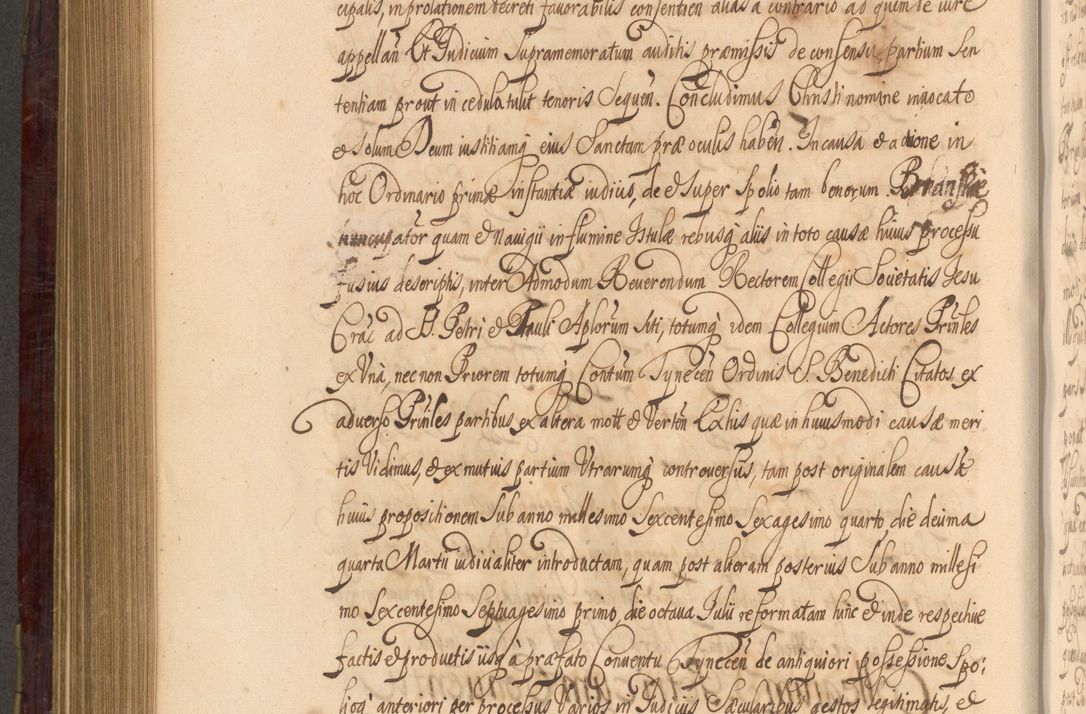 cipalis, in prolationem decreti favorabilis consentien alias a contrario ad quem de iure
appellan Et Iudicium supramemoratum auditis præmissis de consensu partium Sen
tentiam prout in cedula tulit tenoris Sequen. Concludimus Christi nomine invocato
et solum Deum iustitiamq eius Sanctam præ oculis haben. In causa et actione in
hoc Ordinario primæ instantiæ iudicio, de et super spolio tam bonorum
nuncupator quam et Navigii in flumine Istulæ rebusq aliis in toto causæ huius processu
fusius descriptis, inter Admodum Reverendum Rectorem Collegii Societatis Jesu
Crac ad SS. Petri et Pauli Aplorum siti, totumq idem Collegium Actores Prinles
ex Una, nec non Priorem totumq Contum Tynecen Ordinis S. Benedicti Citatos ex
adverso Prinles partibus ex altera mott et Verten Ex his quæ in huiusmodi causæ meri
tis Vidimus, et ex mutuis partium Utrarumq controversiis, tam post originalem causæ
huius propositionem Sub anno millesimo Sexcentesimo Sexagesimo quarto die decima
quarta Martii iudicialiter introductam, quam post alteram posterius Sub anno millesi
mo Sexcentesimo Septuagesimo primo die octava Julii reformatam hinc et inde respective
factis et productis iisq a præfato Conventu Tynecen de antiquiori possessione Spo:
lioq anteriori per processus Varios in Iudiciis Sæcularibus gestos legitimatis, et